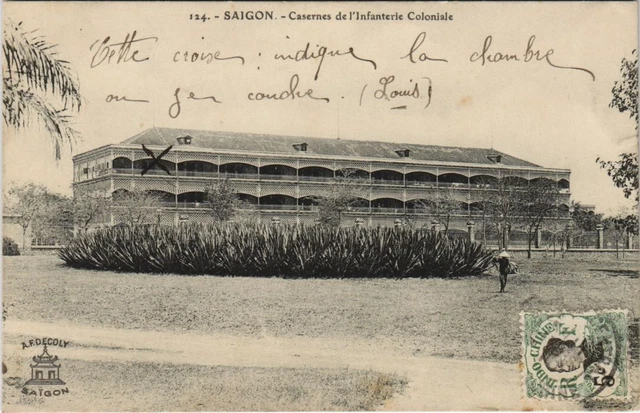 124. - SAIGON. - Casernes de l'Infanterie Coloniale
Cette croix indique la chambre
ou je couche. (Louis)
A.F.DECOLY
SAÏGON
INDO-CHINE
5